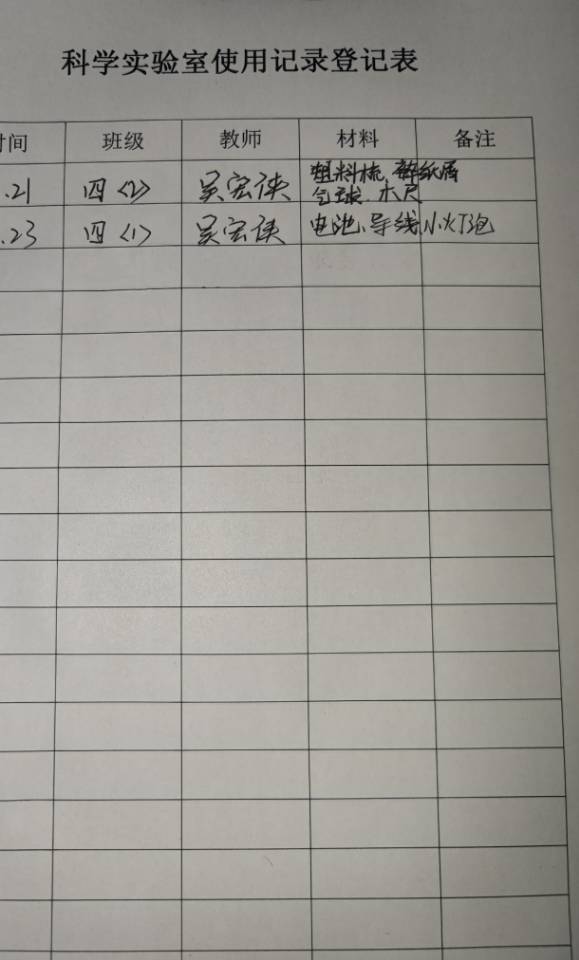 科学实验室使用记录登记表
时间 班级 教师 材料 备注
.21 四〈2〉 吴宏侠 塑料梳、碎纸屑
气球、木尺
.23 四〈1〉 吴宏侠 电池、导线、小灯泡